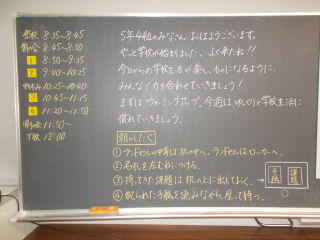 登校 8:35~8:45
朝の会 8:45~8:50
1 8:50~9:35
2 9:40~10:25
中休み 10:25~10:40
3 10:45~11:15
4 11:20~11:50
帰りの会 11:50~
下校 12:00
5年4組のみなさん おはようございます。
やっと学校が始まりました。よく来たね!!
今日からの学校生活が楽しいものになるように、
みんなで力を合わせていきましょう!
まずはウォーミングアップ。今週はゆっくりと学校生活に
慣れていきましょう。
朝のしたく
①ランドセルの中身は机の中へ。ランドセルはロッカーへ。
②名札を左むねにつける。
③持ってきた課題は机の上に出しておく。→
④配られた手紙を読みながら、座って待つ。
手紙
課題